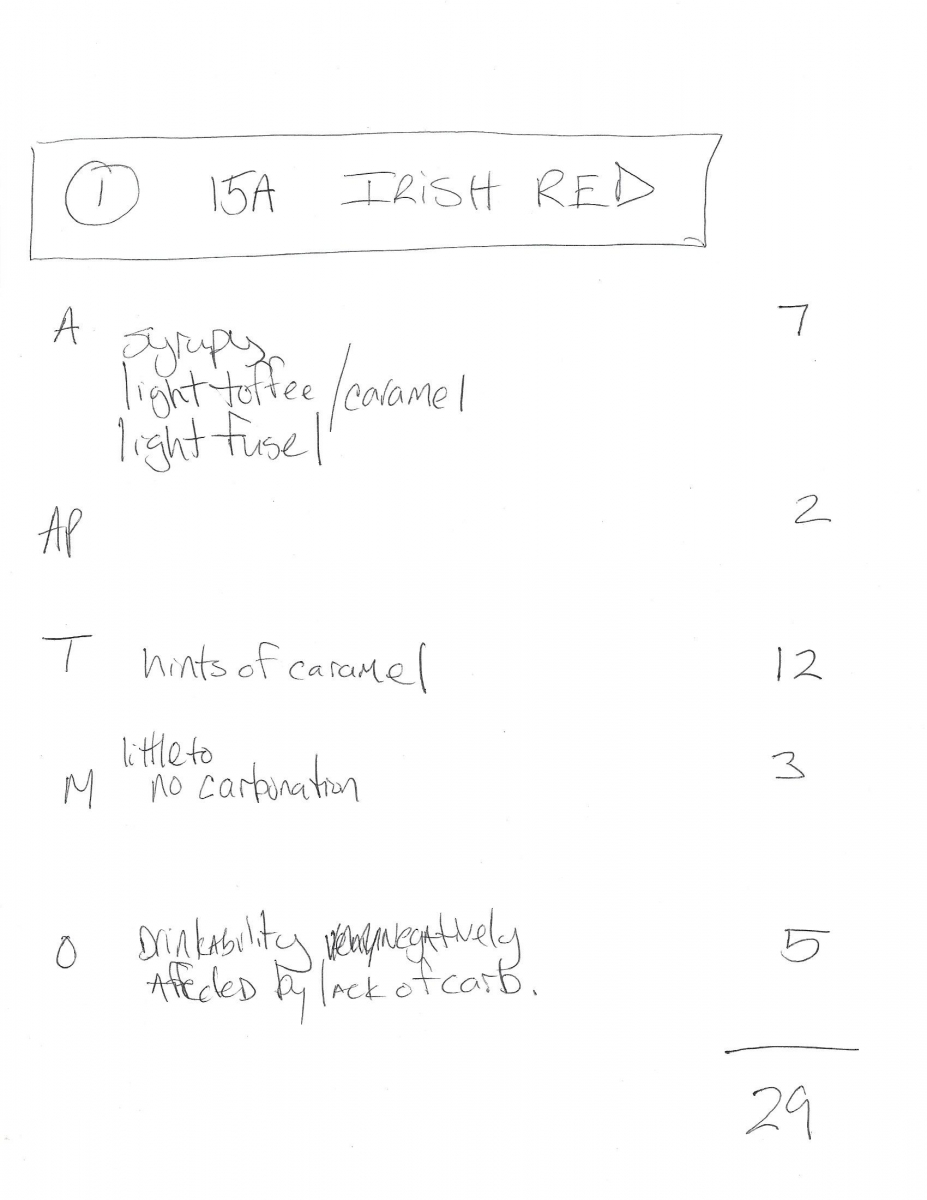 1 15A IRISH RED
A syrupy 7
light toffee/caramel
light fusel
AP 2
T hints of caramel 12
little to
M no carbonation 3
O Drinkability negatively 5
Affected by lack of carb.
29